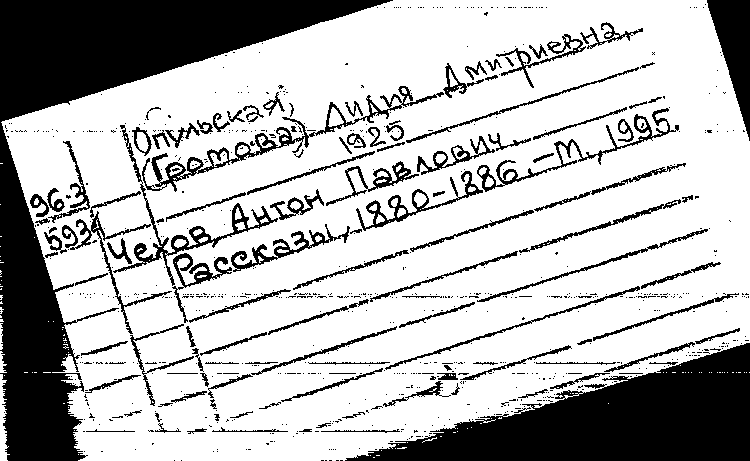 Опульская,
(Громова) Лидия Дмитриевна,
1925
96-3
5934
Чехов, Антон Павлович.
Рассказы, 1880-1886.-М., 1995.